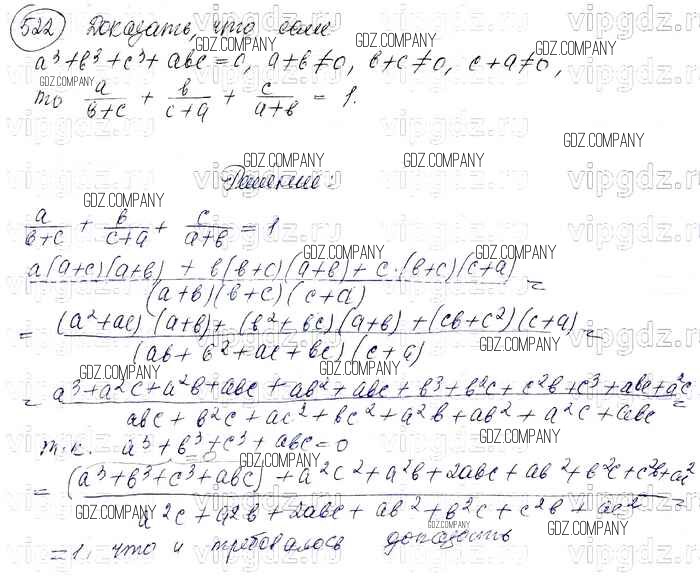 522 Доказать, что если
a³+b³+c³+abc=0, a+b≠0, b+c≠0, c+a≠0,
то a/(b+c) + b/(c+a) + c/(a+b) = 1.
Решение:
a/(b+c) + b/(c+a) + c/(a+b) = 1
(a(a+c)(a+b) + b(b+c)(a+b) + c·(b+c)(c+a))/((a+b)(b+c)(c+a)) =
= ((a²+ac)(a+b) + (b²+bc)(a+b) + (cb+c²)(c+a))/((ab+b²+ac+bc)(c+a)) =
= (a³+a²c+a²b+abc+ab²+abc+b³+b²c+c²b+c³+abc+a²c)/(abc+b²c+ac²+bc²+a²b+ab²+a²c+abc) =
т.к. a³+b³+c³+abc=0
=0
= ((a³+b³+c³+abc)+a²c²+a²b+2abc+ab²+b²c+c²b+ac²)/(a²c+a²b+2abc+ab²+b²c+c²b+ac²) =
=1, что и требовалось доказать
GDZ.COMPANY
vipgdz.ru